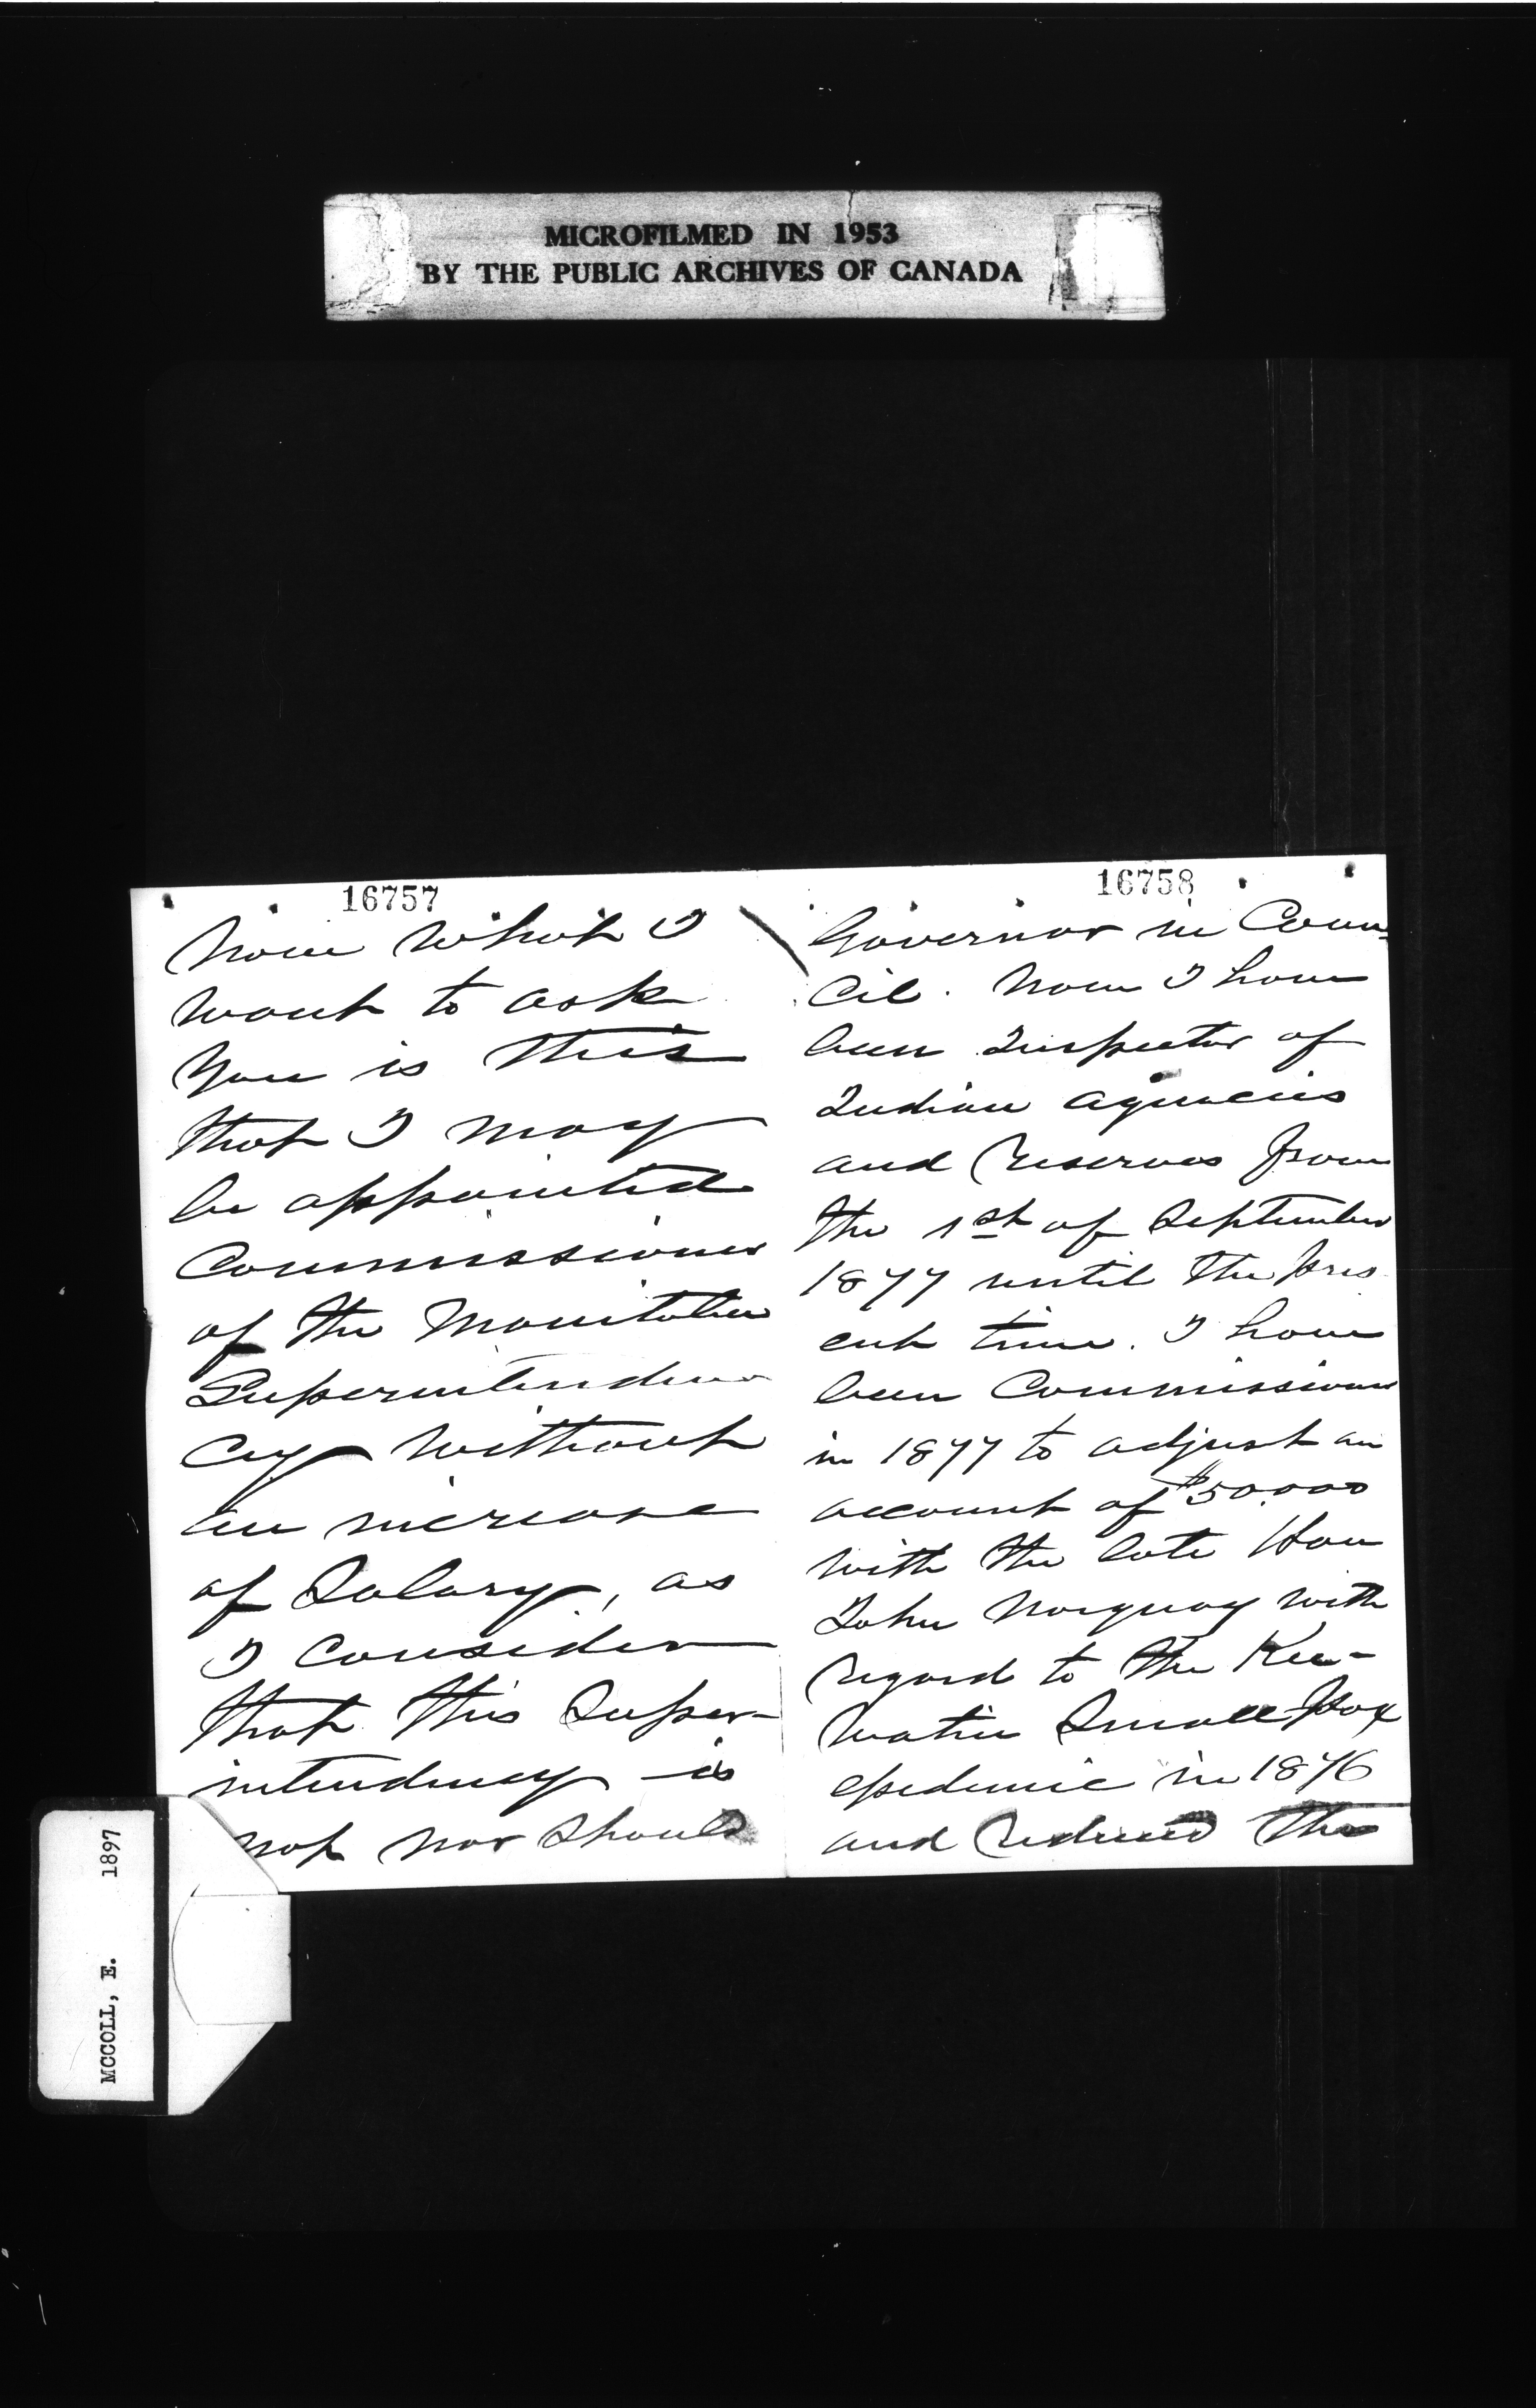 MICROFILMED IN 1953
BY THE PUBLIC ARCHIVES OF CANADA
16757
Now what I
want to ask
you is this
that I may
be appointed
Commissioner
of the Manitoba
Superintenden
cy without
an increase
of Salary, as
I consider
that this Super-
intendency is
not nor should
16758
Governor in Coun-
cil. Now I have
been Inspector of
Indian agencies
and reserves from
the 1st of September
1877 until the pres
ent time. I have
been Commissioner
in 1877 to adjust an
account of $50.000
with the late Hon
John Norquay with
regard to the Kee-
watin Small Pox
epedemic in 1876
and reduced the
MCCOLL, E. 1897